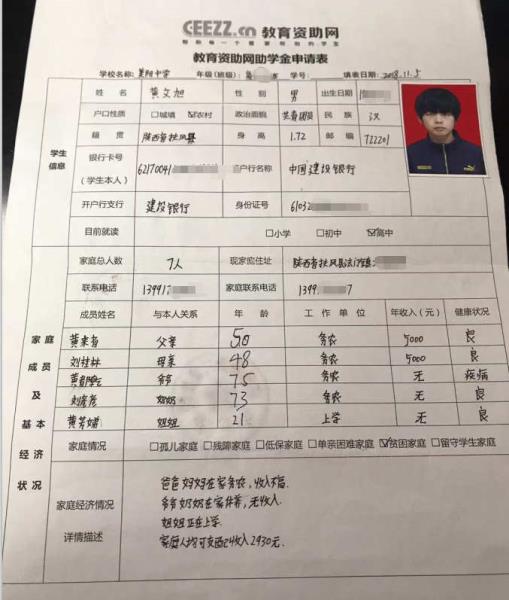 CEEZZ.cn 教育资助网
帮助每一个需要帮助的学生
教育资助网助学金申请表
学校名称: 美阳中学 年级(班级): 高 学号: 填表日期: 2018.11.5
学生信息
姓名 黄文旭 性别 男 出生日期
户口性质 □城镇 ☑农村 政治面貌 共青团员 民族 汉
籍贯 陕西省扶风县 身高 1.72 邮编 722201
银行卡号(学生本人) 62170041 户行名称 中国建设银行
开户行支行 建设银行 身份证号 61032
目前就读 □小学 □初中 ☑高中
家庭成员及基本经济状况
家庭总人数 7人 现家庭住址 陕西省扶风县法门镇
联系电话 13991 家庭联系电话 1399 7
成员姓名 与本人关系 年龄 工作单位 年收入(元) 健康状况
黄来省 父亲 50 务农 5000 良
刘桂林 母亲 48 务农 5000 良
黄 爷爷 75 务农 无 疾病
刘 奶奶 73 务农 无 良
黄芳婧 姐姐 21 上学 无 良
家庭情况 □孤儿家庭 □残障家庭 □低保家庭 □单亲困难家庭 ☑贫困家庭 □留守学生家庭
家庭经济情况详情描述
爸爸妈妈在家务农,收入不高.
爷爷奶奶在家休养,无收入.
姐姐正在上学.
家庭人均可支配收入2930元.